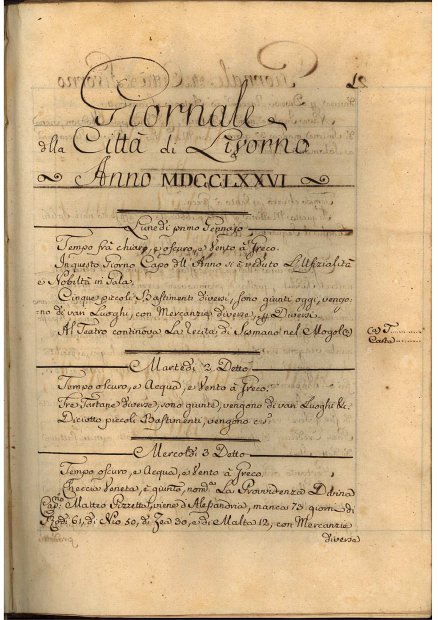 Giornale
dlla Città di Livorno
Anno MDCCLXXVI
Lunedì primo Gennajo
Tempo frà chiaro, e oscuro, e Vento à Greco.
In questo Giorno Capo dll' Anno si è veduto L'Ufizialità
e Nobiltà in Gala.
Cinque piccoli Bastimenti diversi, sono giunti oggi, vengo:
:no di varj Luoghi, con Mercanzie diverse,
Al Teatro continova La Recita di Sesmano nel Mogol
Martedì 2. Detto
Tempo oscuro, e Acqua, e Vento à Greco.
Tre Tartane diverse, sono giunte, vengono di varj Luoghi &c.
Diciotto piccoli Bastimenti, vengono
Mercoldì 3 Detto
Tempo oscuro, e Acqua, e Vento à Greco.
Checcia Veneta, è giunta, nom.a La Provvidenza Divina
Cap.no Matteo Pizzetta, viene d'Alessandria, manca 73 giorni, di
Rodi 61, di Nio 50, di Zea 30, e di Malta 12, con Mercanzie
diverse